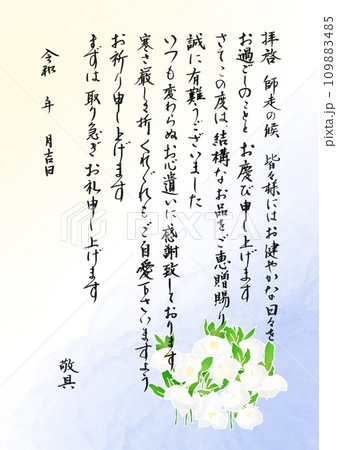 拝啓 師走の候 皆々様にはお健やかな日々を
お過ごしのことと お慶び申し上げます
さてこの度は 結構なお品をご恵贈賜り
誠に有難うございました
いつも変わらぬお心遣いに感謝致しております
寒さ厳しき折 くれぐれもご自愛下さいますよう
お祈り申し上げます
まずは 取り急ぎ お礼申し上げます
敬具
令和 年 月吉日
PIXTA
pixta.jp - 109883485